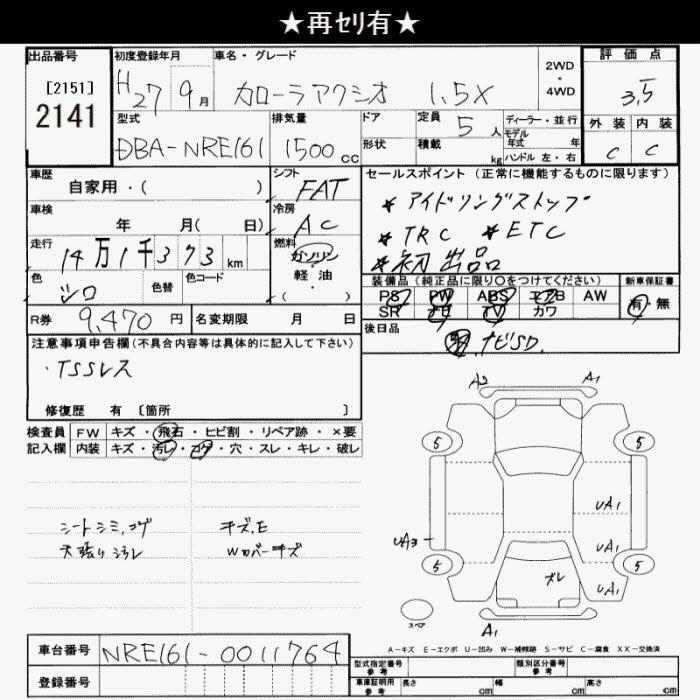 ★再セリ有★
出品番号 初度登録年月 車名・グレード 2WD・4WD 評価点
[2151]
2141
H27 9月 カローラアクシオ 1.5X 3.5
型式 排気量 ドア 定員 5人 ディーラー・並行 外装 内装
モデル年式 年
DBA-NRE161 1500cc 形状 積載 kg ハンドル 左・右 C C
車歴 シフト セールスポイント (正常に機能するものに限ります)
自家用・( ) FAT
* アイドリングストップ
車検 冷房
年 月( 日) AC
* TRC * ETC
走行 燃料
14万1千373km ガソリン
* 初出品
色 色替 色コード 軽・油
シロ ・( )
装備品 (純正品に限り○をつけてください) 新車保証書
PS PW ABS エアB AW 有・無
SR ナビ TV カワ
R券 9,470円 名変期限 月 日
後日品
ナビSD.
注意事項申告欄(不具合内容等は具体的に記入して下さい)
・TSSレス
修復歴 有 [箇所 ]
検査員 FW キズ・飛石・ヒビ割・リペア跡・×要
記入欄 内装 キズ・汚レ・コゲ・穴・スレ・キレ・破レ
A2 A1
5 5
UA1
UA3 UA1
5 ズレ UA1 5
スペア A1
シートシミ,コゲ キズ,E
天張りヨゴレ Wカバーキズ
A-キズ E-エクボ U-凹み W-補修跡 S-サビ C-腐食 XX-交換済
車台番号 NRE161-0011764
登録番号
型式指定番号 参考 類別区分番号 参考
車庫証明用 参考 長さ cm 幅 cm 高さ cm